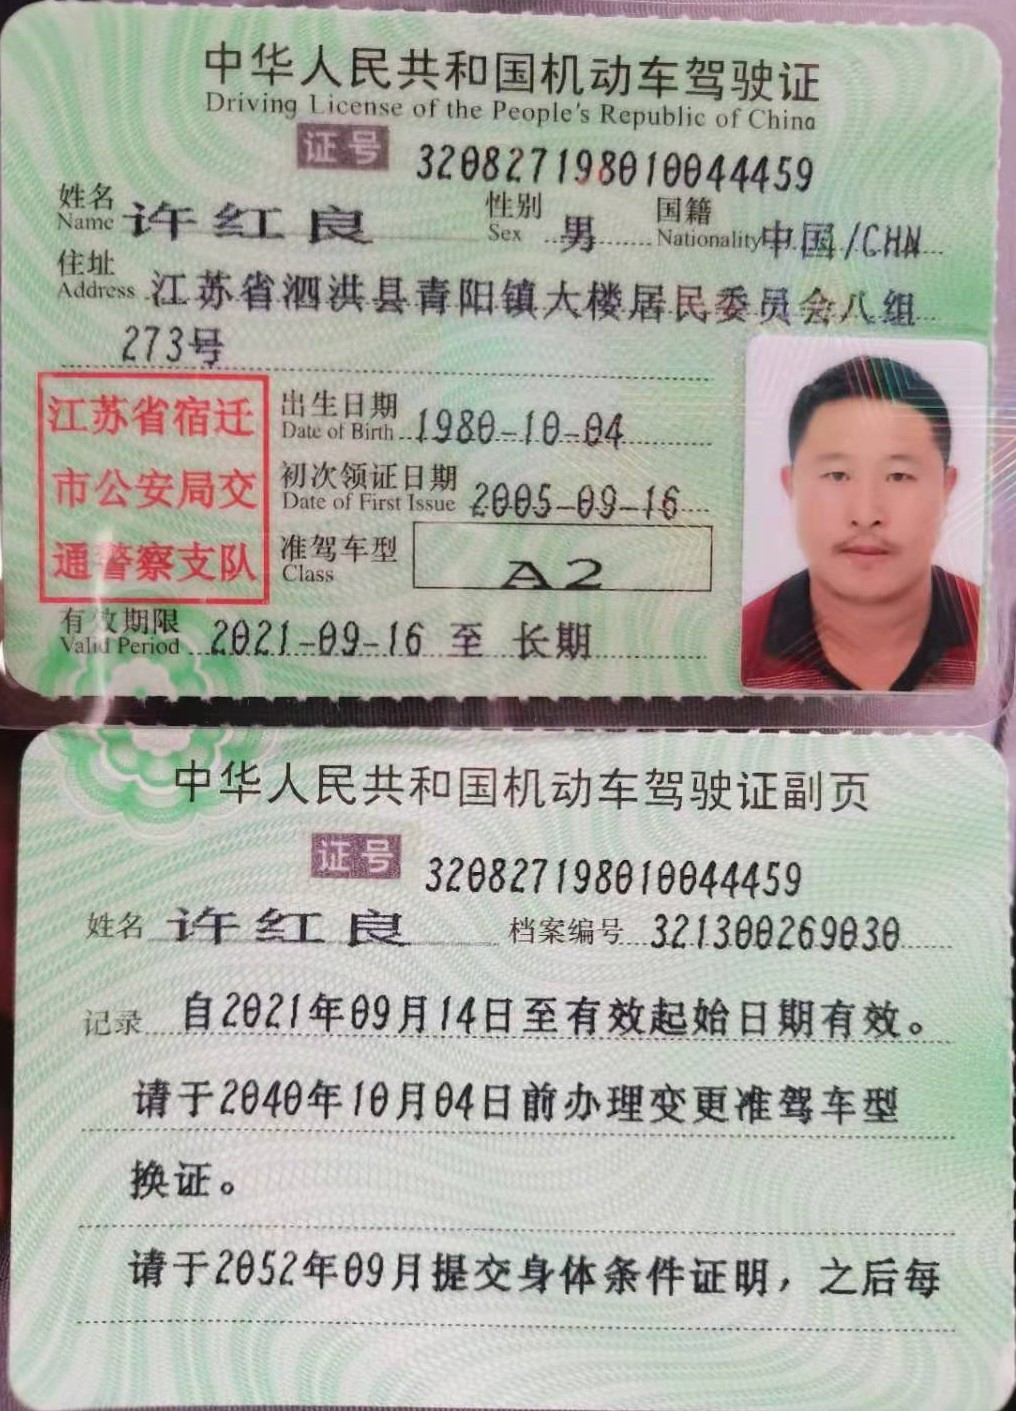 中华人民共和国机动车驾驶证
Driving License of the People's Republic of China
证号 320827198010044459
姓名 Name 许红良 性别 Sex 男 国籍 Nationality 中国/CHN
住址 Address 江苏省泗洪县青阳镇大楼居民委员会八组
273号
江苏省宿迁
市公安局交
通警察支队
出生日期 Date of Birth 1980-10-04
初次领证日期 Date of First Issue 2005-09-16
准驾车型 Class A2
有效期限 Valid Period 2021-09-16 至 长期
中华人民共和国机动车驾驶证副页
证号 320827198010044459
姓名 许红良 档案编号 321300269030
记录 自2021年09月14日至有效起始日期有效。
请于2040年10月04日前办理变更准驾车型
换证。
请于2052年09月提交身体条件证明，之后每